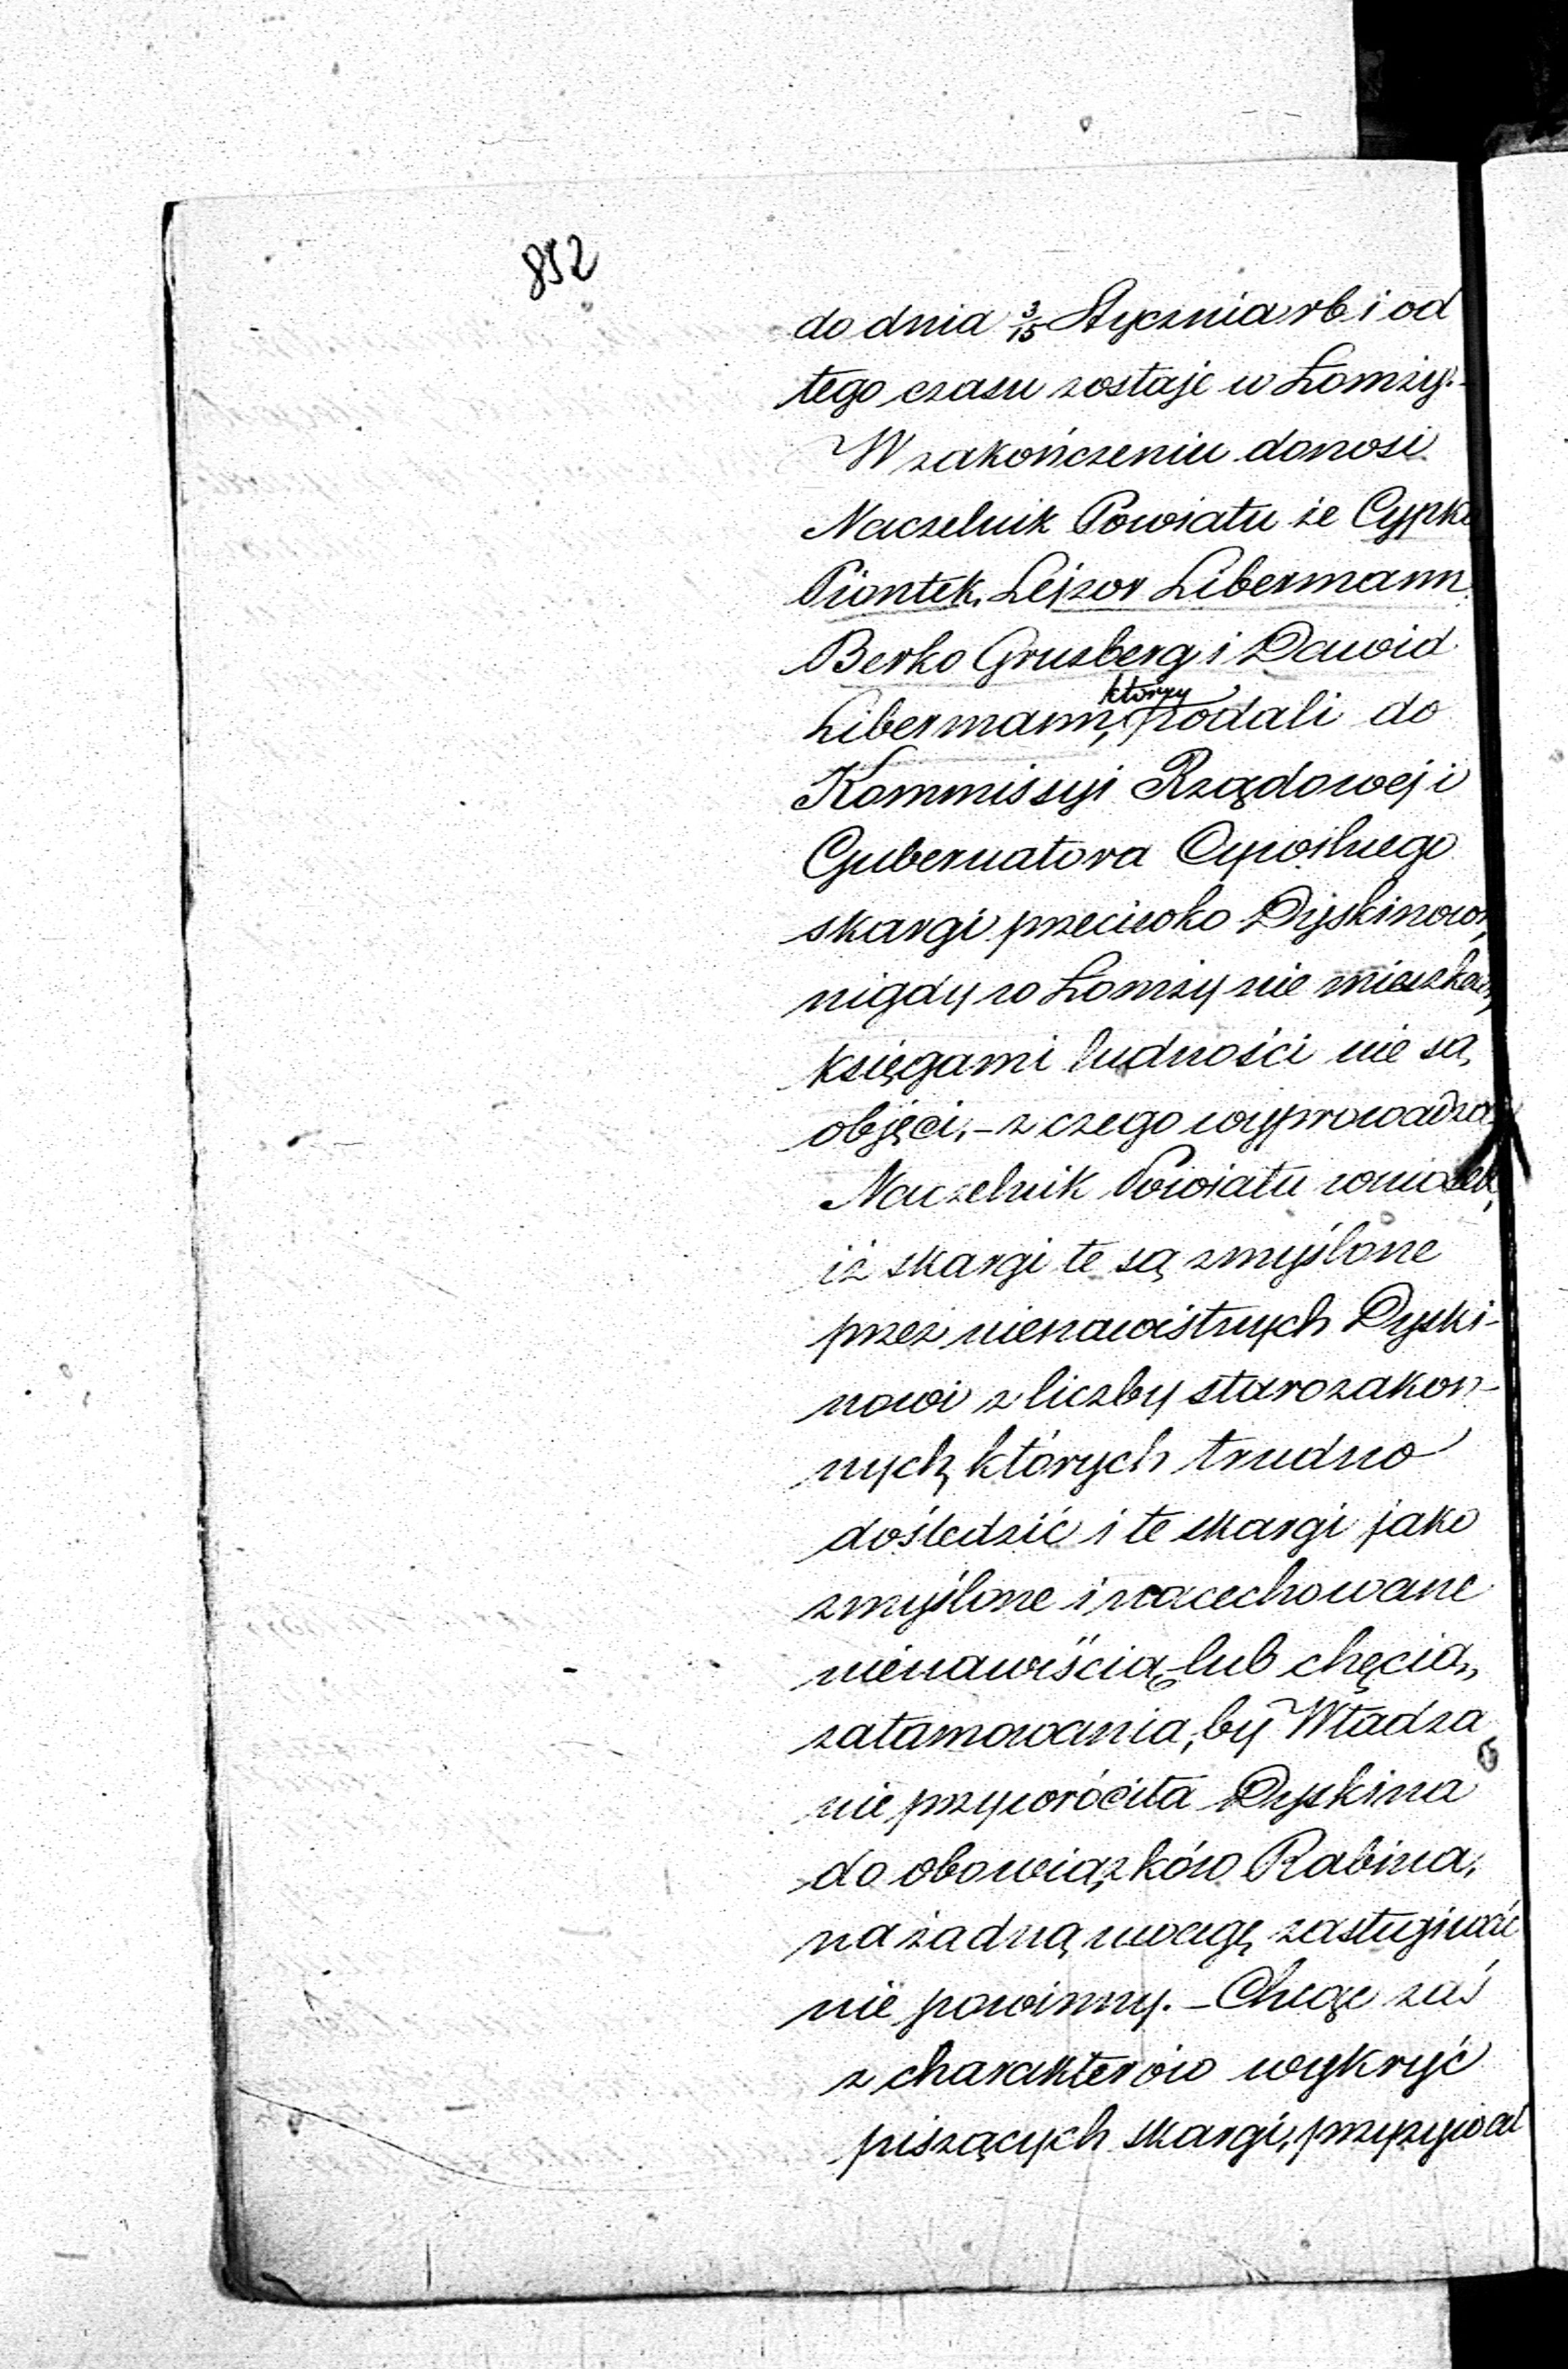 852
do dnia 3/15 Stycznia rb. i od
tego czasu zostaje w Łomży.-
W zakończeniu donosi
Naczelnik Powiatu że Cypka
Piontek, Lejzor Libermann
Berko Gruzberg i Dawid
Libermann, którzy podali do
Kommissyi Rządowej i
Gubernatora Cywilnego
skargi przeciwko Dyskinowi,
nigdy w Łomży nie mieszkali,
księgami ludności nie są
objęci, - z czego wyprowadza
Naczelnik Powiatu wniosek,
iż skargi te są zmyślone
przez nienawistnych Dyski-
nowi z liczby starozakon-
nych, których trudno
dośledzić i te skargi jako
zmyślone i nacechowane
nienawiścią lub chęcią,
zatamowania, by Władza
nie przywróciła Dyskina
do obowiązków Rabina,
na żadną uwagę zasługiwać
nie powinny. - Chcąc zaś
z charakterów wykryć
piszących skargi, przyzywał